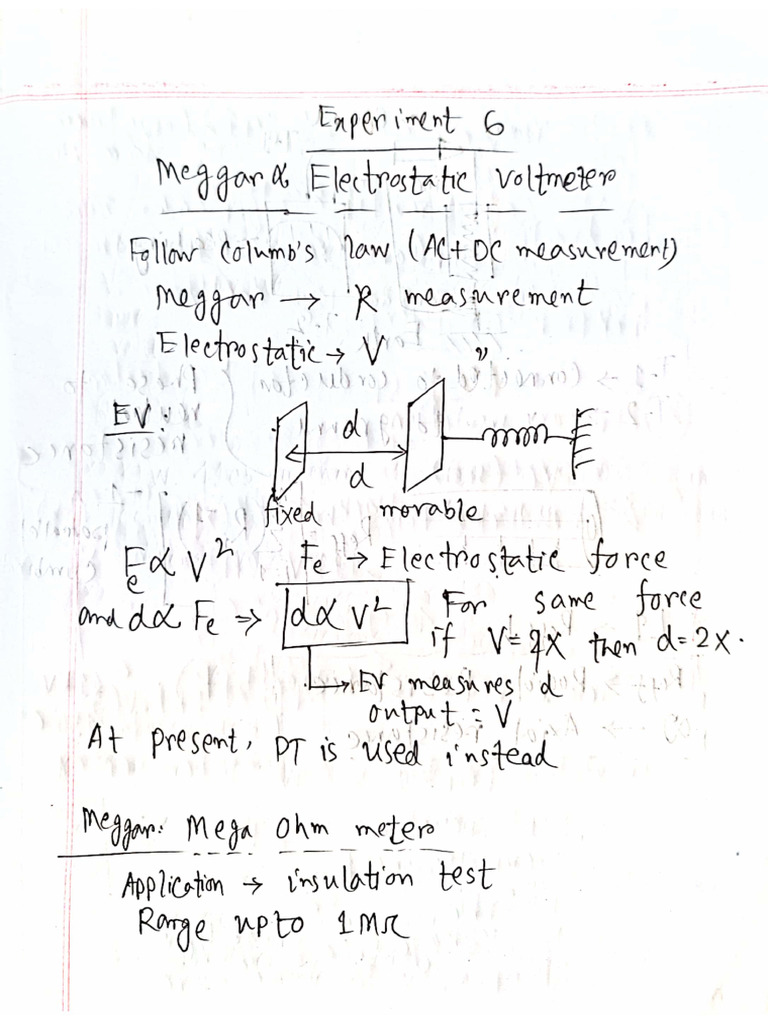 Experiment 6
Meggar & Electrostatic Voltmeter
Follow Columb's law (AC+DC measurement)
Meggar → R measurement
Electrostatic → V "
EV:
d
d
fixed movable
Fe ∝ V² Fe → Electrostatic force
and d∝ Fe ⇒ d∝ V² For same force
if V= then d=2x.
→ EV measures d
output = V
At present, PT is used instead
Meggar: Mega Ohm meter
Application → insulation test
Range upto 1MΩ